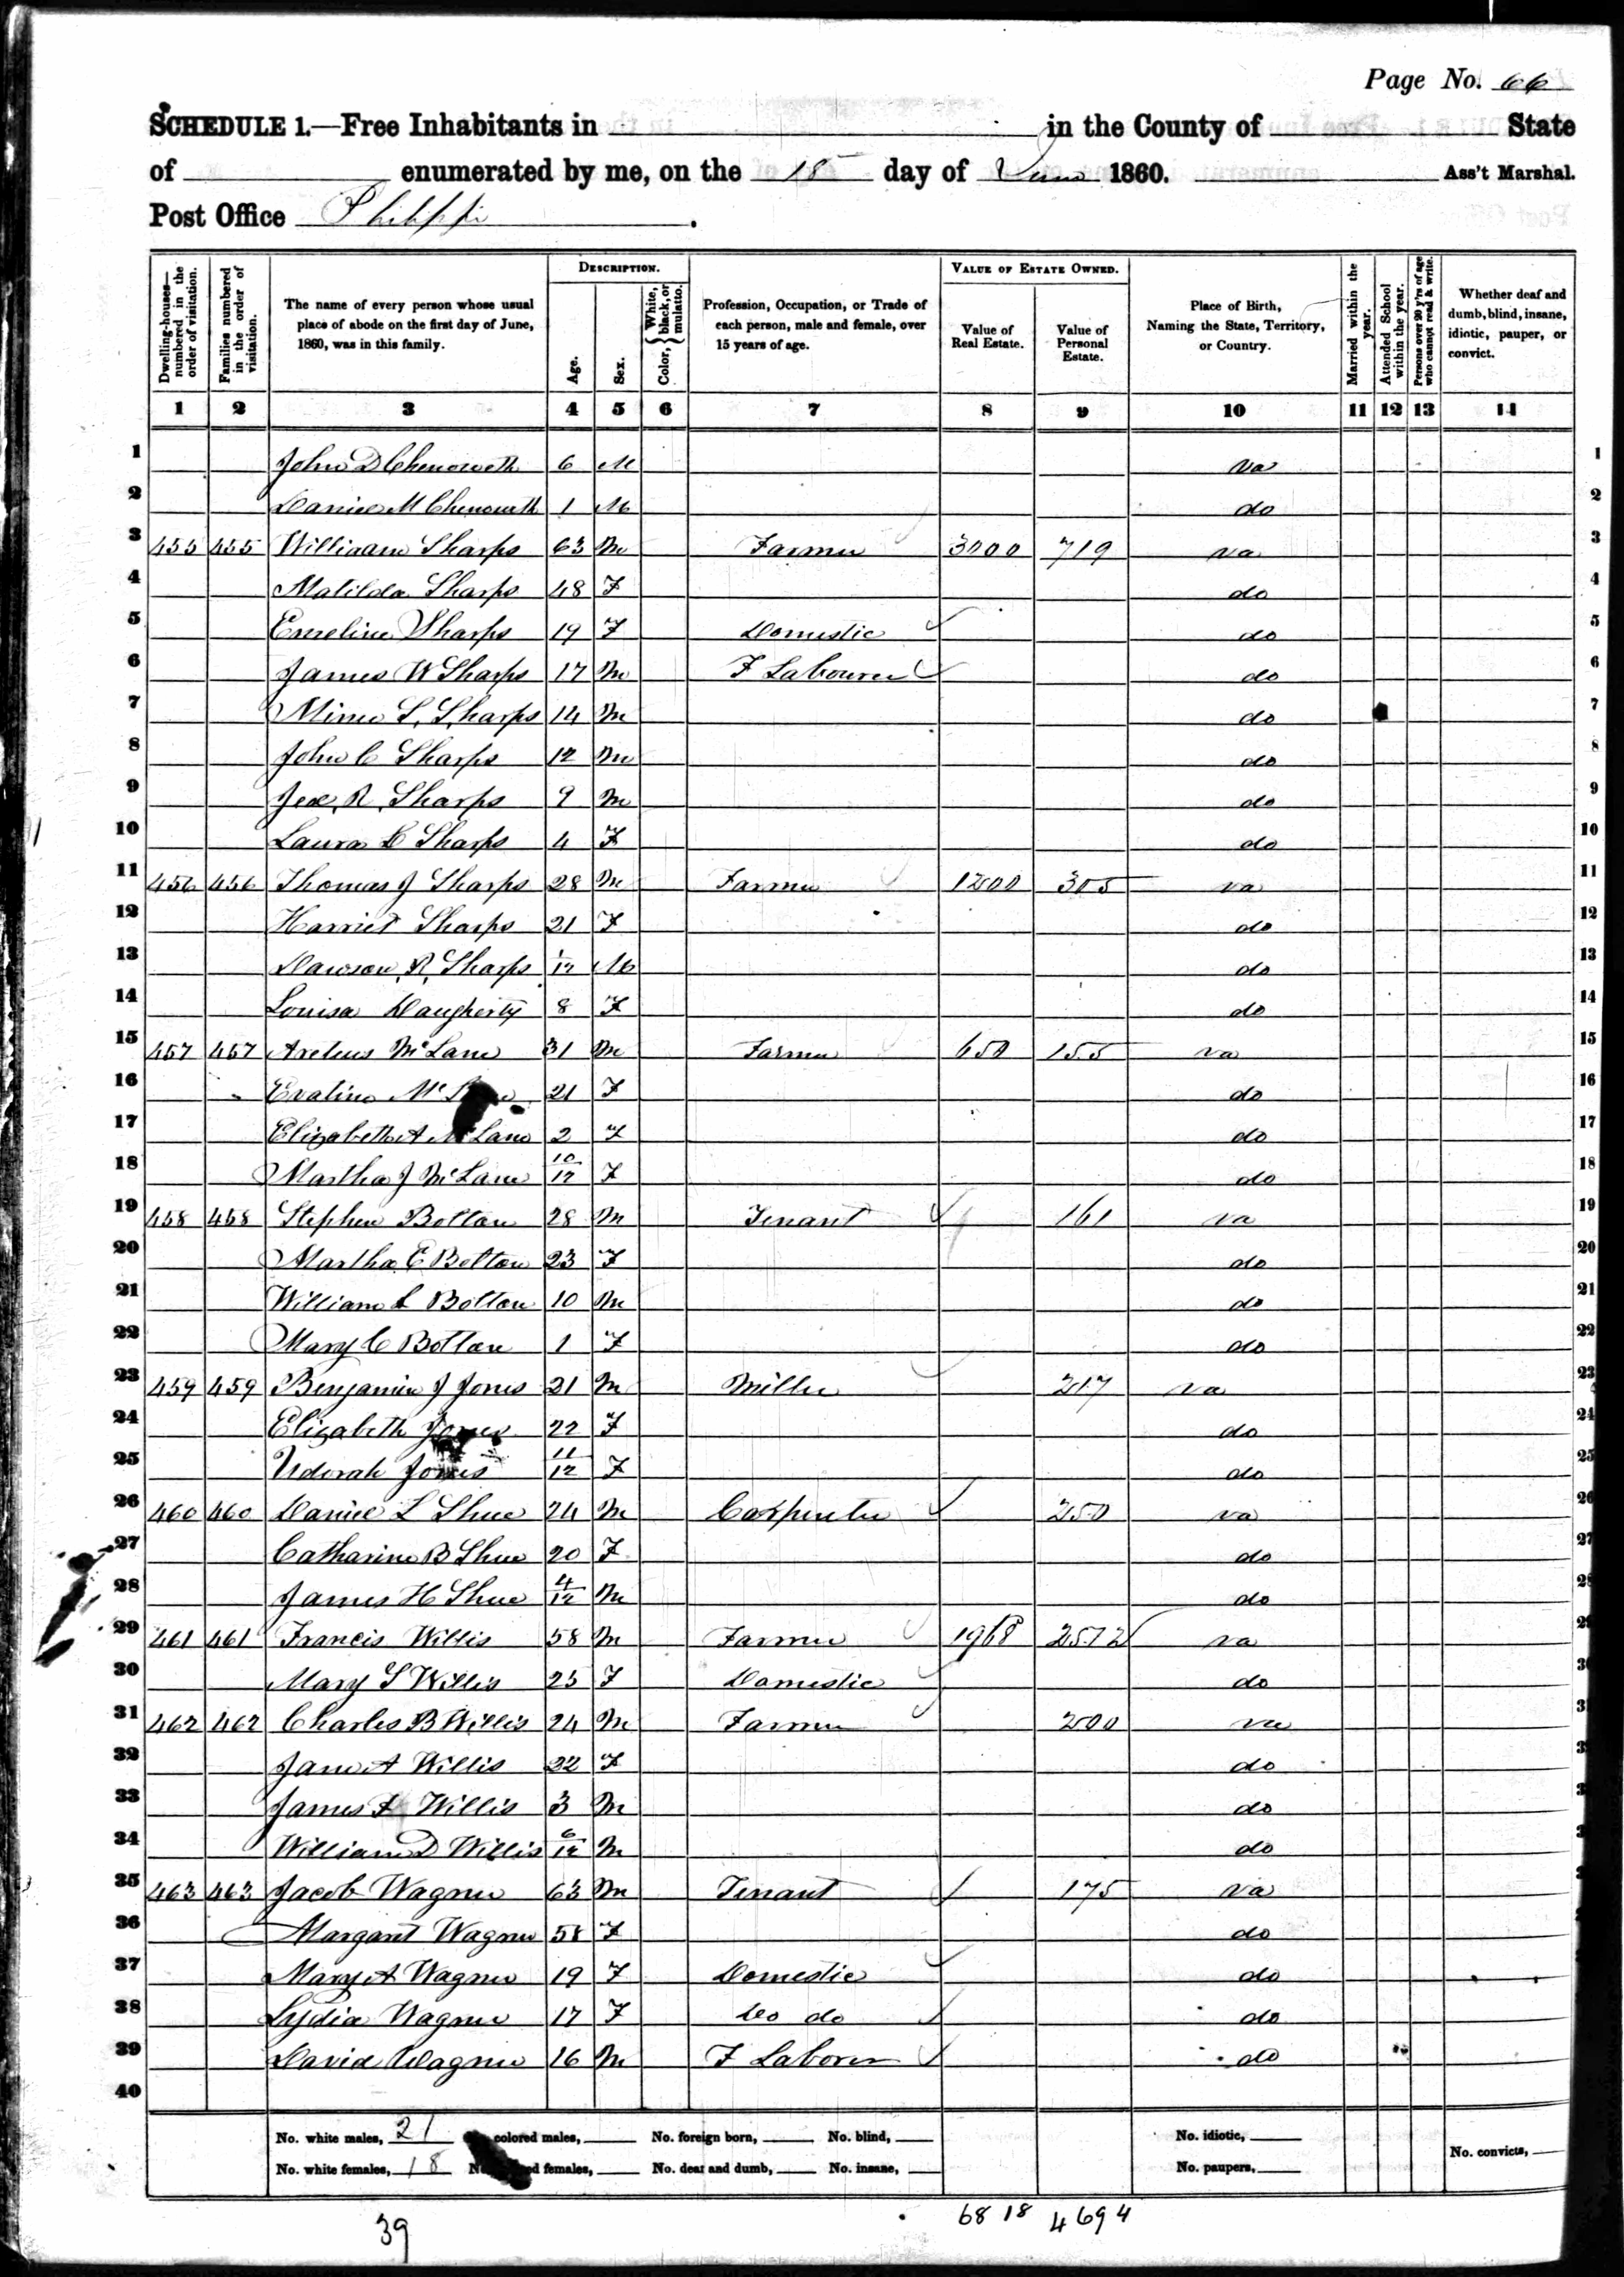 Page No. 66
SCHEDULE 1.—Free Inhabitants in in the County of State
of enumerated by me, on the 18 day of June 1860. Ass't Marshal.
Post Office Philippi.
Dwelling-houses—numbered in the order of visitation.
Families numbered in the order of visitation.
The name of every person whose usual place of abode on the first day of June, 1860, was in this family.
DESCRIPTION.
Age.
Sex.
Color, { White, black, or mulatto.
Profession, Occupation, or Trade of each person, male and female, over 15 years of age.
VALUE OF ESTATE OWNED.
Value of Real Estate.
Value of Personal Estate.
Place of Birth, Naming the State, Territory, or Country.
Married within the year.
Attended School within the year.
Persons over 20 y'rs of age who cannot read & write.
Whether deaf and dumb, blind, insane, idiotic, pauper, or convict.
1 2 3 4 5 6 7 8 9 10 11 12 13 14
1 John D Chenoweth 6 M Va 1
2 Daniel M Chenowith 1 M do 2
3 455 455 Williaam Sharps 63 M Farmer 3000 719 Va 3
4 Matilda Sharps 48 F do 4
5 Emeline Sharps 19 F Domestic do 5
6 James W Sharps 17 M F Labourer do 6
7 S. Sharps 14 M do 7
8 John C Sharps 12 M do 8
9 R. Sharps 9 M do 9
10 Laura Sharps 4 F do 10
11 456 456 Thomas J Sharps 28 M Farmer 1200 305 Va 11
12 Harriet Sharps 21 F do 12
13 Dawson R. Sharps 1/12 M do 13
14 Louisa Daugherty 8 F do 14
15 457 457 McLane 31 M Farmer 650 155 Va 15
16 Evaline Mc 21 F do 16
17 Elizabeth A McLane 2 F do 17
18 Martha J McLane 10/12 F do 18
19 458 458 Stephen Bolton 28 M Tenant 161 Va 19
20 Martha E Bolton 23 F do 20
21 William L Bolton 10 M do 21
22 Mary C Bolton 1 F do 22
23 459 459 Benjamin J Jones 21 M Miller 217 Va 23
24 Elizabeth Jones 22 F do 24
25 Udorah Jones 11/12 F do 25
26 460 460 Daniel L Shue 24 M Carpenter 250 Va 26
27 Catharine B Shue 20 F do 27
28 James H Shue 4/12 M do 28
29 461 461 Francis Willis 58 M Farmer 1968 2572 Va 29
30 Mary S Willis 25 F Domestic do 30
31 462 462 Charles B Willis 24 M Farmer 200 Va 3
32 Jane A Willis 22 F do 3
33 James F Willis 3 M do 3
34 William D Willis 6/12 M do 3
35 463 463 Jacob Wagner 63 M Tenant 175 Va
36 Margaret Wagner 58 F do
37 Mary A Wagner 19 F Domestic do
38 Lydia Wagner 17 F Do do do
39 David Wagner 16 M F Laborer do
40
No. white males, 21 colored males, No. foreign born, No. blind, No. idiotic,
No. white females, 18 females, No. deaf and dumb, No. insane, No. paupers, No. convicts,
39 6818 4694